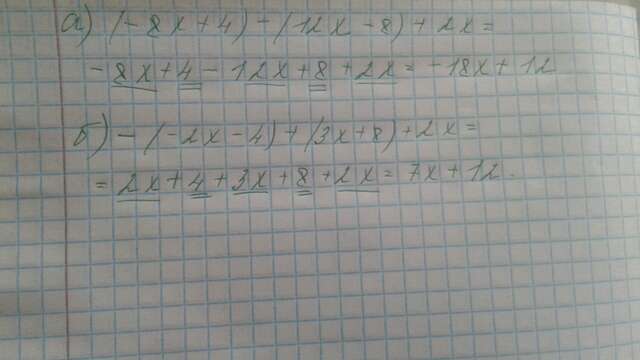 а) (-8x+4)-(12x-8)+2x=
-8x+4-12x+8+2x=-18x+12
б) -(-2x-4)+(3x+8)+2x=
=2x+4+3x+8+2x=7x+12.